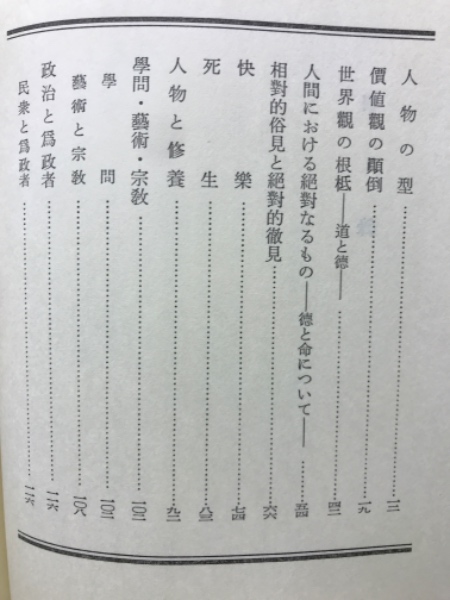 人物の型……一二
價値觀の顚倒……一九
世界觀の根柢――道と德――……四二
人間における絕對なるもの――德と命について――……五四
相對的俗見と絕對的徹見……六六
快樂……七四
死生……八三
人物と修養……九二
學問・藝術・宗敎……一〇二
學問……一〇二
藝術と宗敎……一〇八
政治と爲政者……一一六
民衆と爲政者……一一六